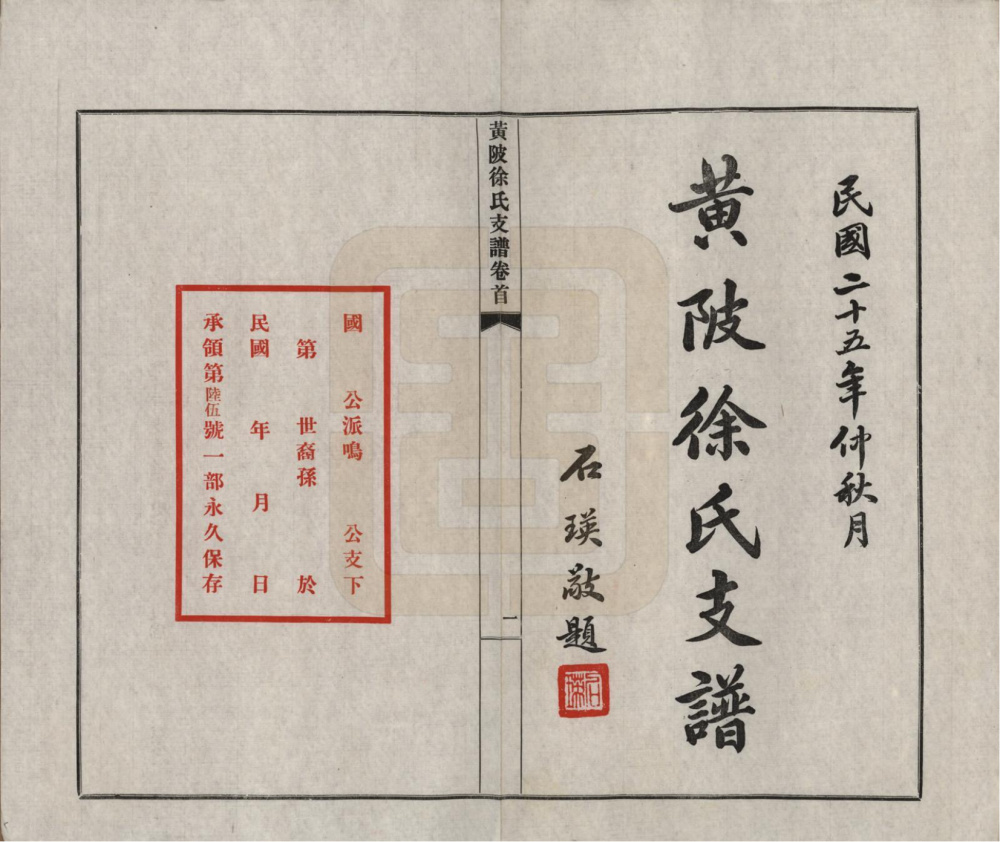 民國二十五年仲秋月
黃陂徐氏支譜
石瑛敬題
石瑛
黃陂徐氏支譜卷首
一
國 公派鳴 公支下
第 世裔孫 於
民國 年 月 日
承領第陸伍號一部永久保存